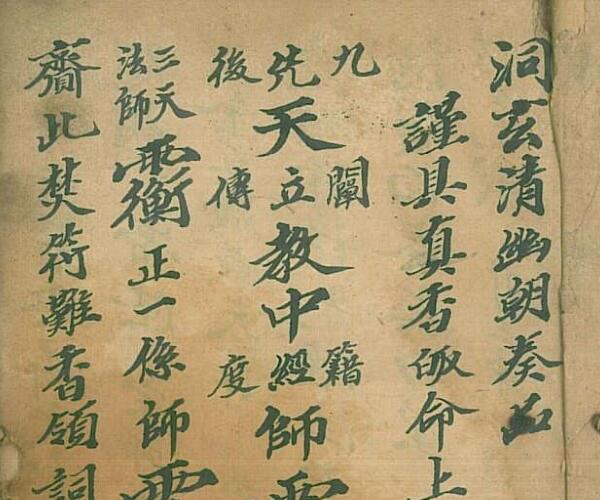 洞玄清幽朝奏品
謹具真香皈命上
九闡籍
先天立教中經師
後傳度
三天法師正一係師
齎此焚符難香領詞